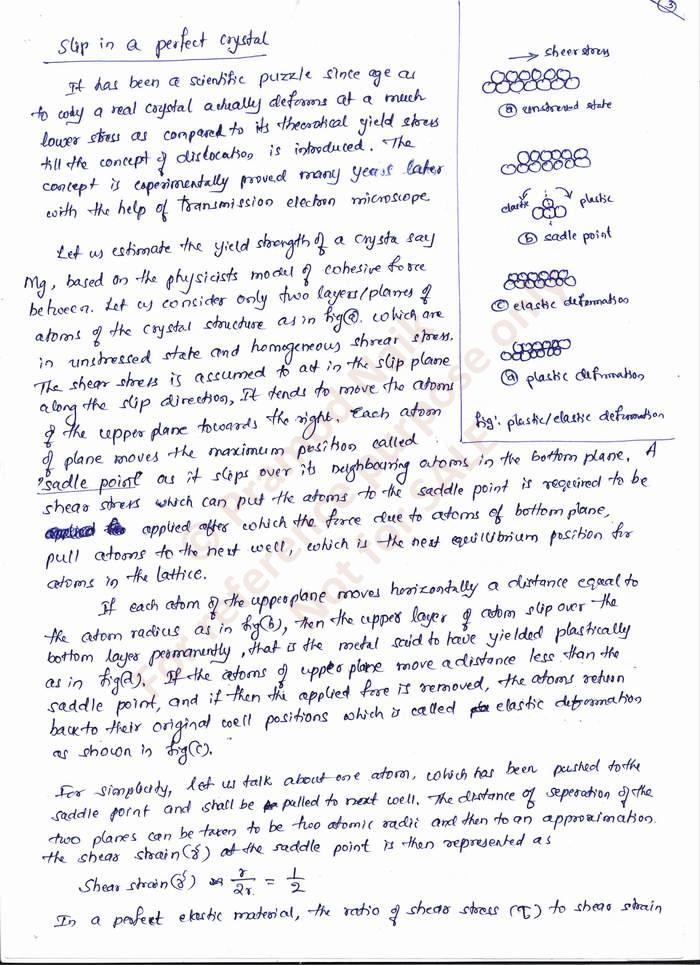 3
Slip in a perfect crystal
It has been a scientific puzzle since age as
to why a real crystal actually deforms at a much
lower stress as compared to its theoratical yield stress
till the concept of dislocation is introduced. The
concept is experimentally proved many years later
with the help of Transmission electron microscope.
Let us estimate the yield strength of a crysta say
Mg, based on the physicists model of cohesive force
between. Let us consider only two layers/planes of
atoms of the crystal structure as in fig(a). which are
in unstressed state and homogeneous shrear stress.
The shear stress is assumed to act in the slip plane
along the slip direction, It tends to move the atoms
of the upper plane towards the right. Each atom
of plane moves the maximum position called
"sadle point" as it slips over its neighbouring atoms in the bottom plane. A
shear stress which can put the atoms to the saddle point is required to be
applied after which the force due to atoms of bottom plane,
pull atoms to the next well, which is the next equilibrium position for
atoms in the lattice.
If each atom of the upper plane moves horizontally a distance equal to
the atom radius as in fig(b), then the upper layer of atom slip over the
bottom layer permanently, that is the metal said to have yielded plastically
as in fig(d). If the atoms of upper plane move a distance less than the
saddle point, and if then the applied fore is removed, the atoms return
back to their original well positions which is called elastic deformation
as shown in fig(c).
For simplicity, let us talk about one atom, which has been pushed to the
saddle point and shall be pulled to next well. The distance of seperation of the
two planes can be taken to be two atomic radii and then to an approximation
the shear strain(γ) at the saddle point is then represented as
Shear strain(γ) = r/2r = 1/2
In a perfect elastic material, the ratio of shear stress (τ) to shear strain
→ sheer stress
(a) unstressed state
elastic plastic
(b) sadle point
(c) elastic deformation
(a) plastic deformation
fig: plastic/elastic deformation
© Pramod Naik
For reference purpose only
Not for SALE